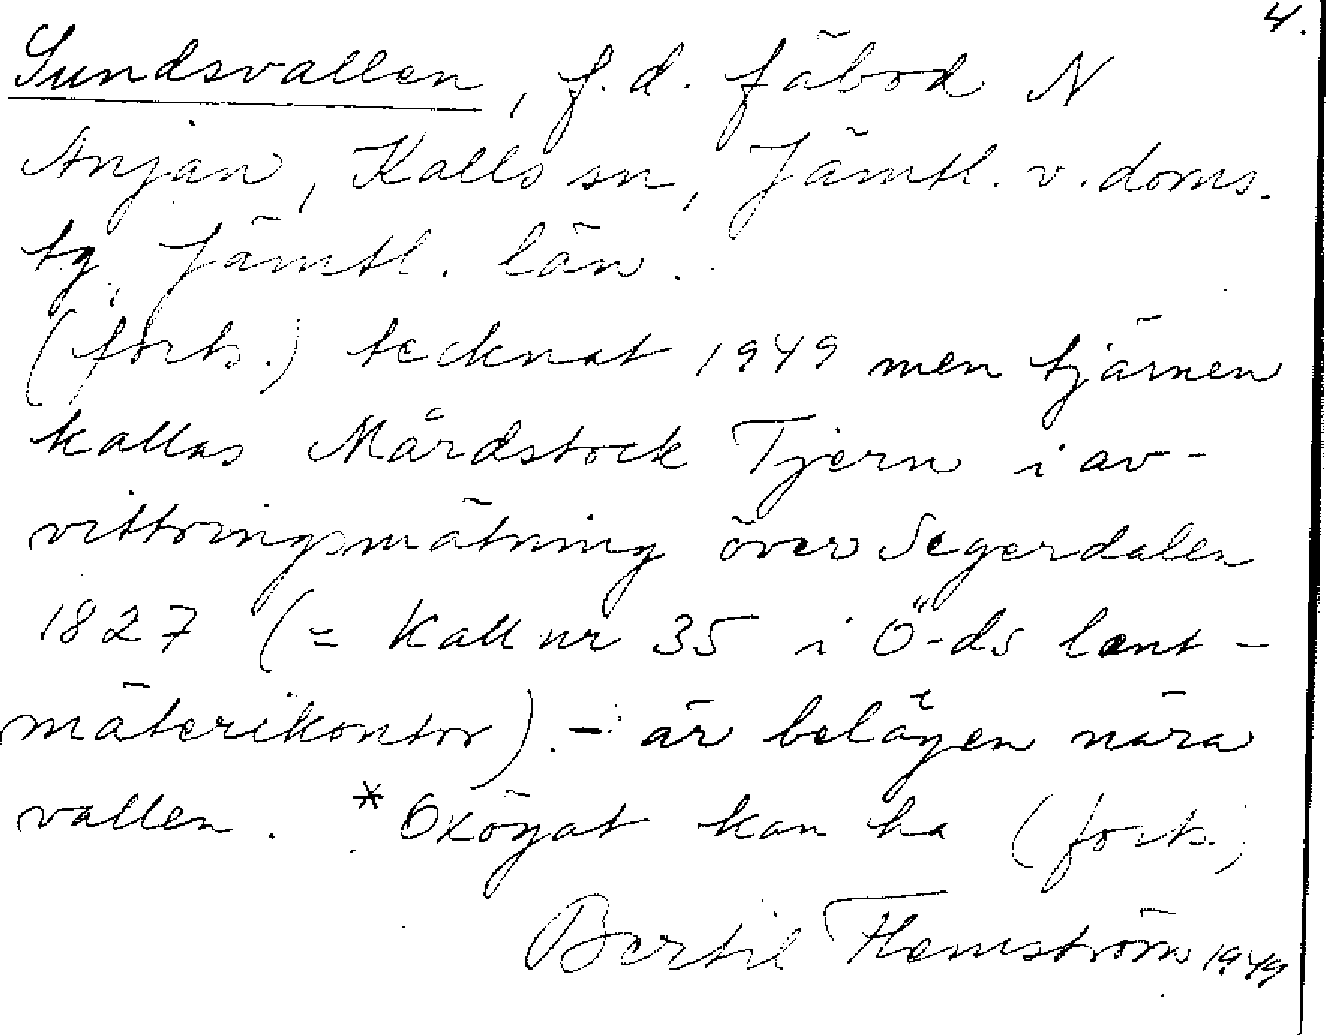 4.
Sundsvallen, f.d. fäbod N
Anjan, Kalls sn, Jämtl. v. doms.
tg, Jämtl. län.
(forts.) tecknat 1949 men tjärnen
kallas Mårdstock Tjern i av-
vittringsmätning över Segerdalen
1827 (= Kall nr 35 i Ö-ds lant-
mäterikontor). - är belägen nära
vallen. *Oxögat kan ha (forts.)
Bertil Flemström 1949